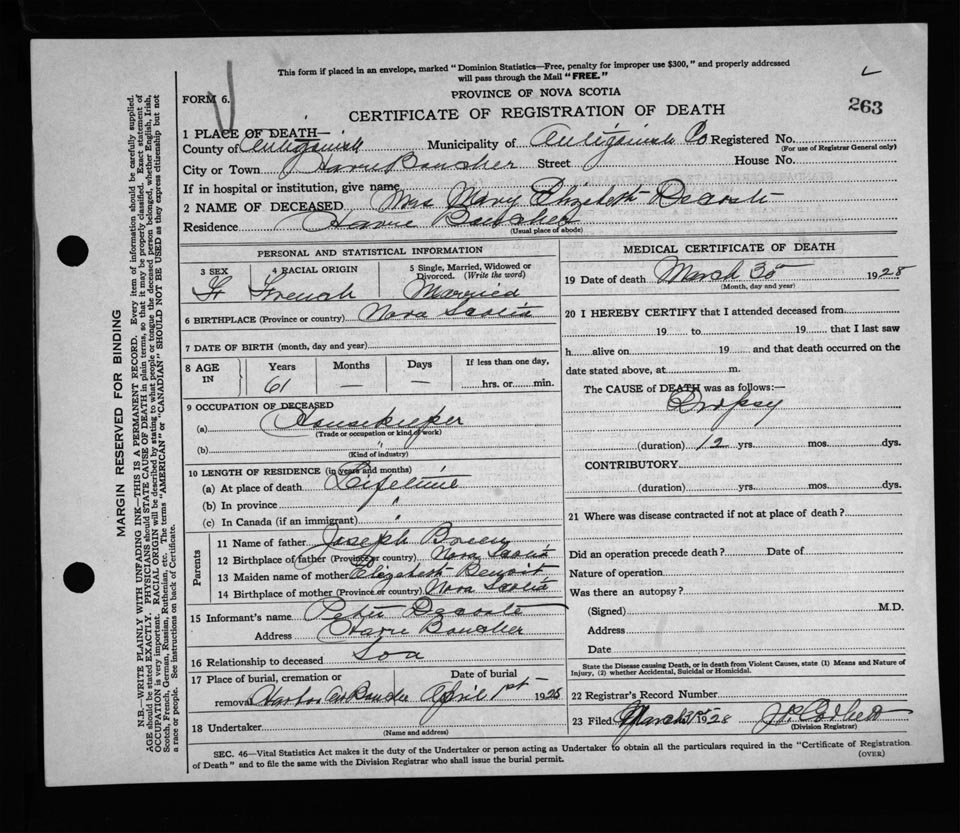 This form if placed in an envelope, marked "Dominion Statistics—Free, penalty for improper use $300," and properly addressed
will pass through the Mail "FREE."
FORM 6.
PROVINCE OF NOVA SCOTIA
CERTIFICATE OF REGISTRATION OF DEATH
263
1 PLACE OF DEATH—
County of Antigonish Municipality of Antigonish Co Registered No.
(For use of Registrar General only)
City or Town Havre Boucher Street House No.
If in hospital or institution, give name
2 NAME OF DECEASED Mrs Mary Elizabeth Decoste
Residence Havre Boucher
(Usual place of abode)
PERSONAL AND STATISTICAL INFORMATION
3 SEX 4 RACIAL ORIGIN 5 Single, Married, Widowed or
Divorced. (Write the word)
F French Married
6 BIRTHPLACE (Province or country) Nova Scotia
7 DATE OF BIRTH (month, day and year)
8 AGE IN Years Months Days If less than one day,
61 — — hrs. or min.
9 OCCUPATION OF DECEASED
(a) Housekeeper
(Trade or occupation or kind of work)
(b) "
(Kind of industry)
10 LENGTH OF RESIDENCE (in years and months)
(a) At place of death Lifetime
(b) In province "
(c) In Canada (if an immigrant) "
Parents
11 Name of father Joseph Breen
12 Birthplace of father (Province or country) Nova Scotia
13 Maiden name of mother Elizabeth Benoit
14 Birthplace of mother (Province or country) Nova Scotia
15 Informant's name Peter Decoste
Address Havre Boucher
16 Relationship to deceased Son
17 Place of burial, cremation or Date of burial
removal Harbor au Bouche April 1st 1928
18 Undertaker
(Name and address)
MEDICAL CERTIFICATE OF DEATH
19 Date of death March 30 1928
(Month, day and year)
20 I HEREBY CERTIFY that I attended deceased from
19 to 19 that I last saw
h alive on 19 and that death occurred on the
date stated above, at m.
The CAUSE of DEATH was as follows:—
Dropsy
(duration) 12 yrs. mos. dys.
CONTRIBUTORY
(duration) yrs. mos. dys.
21 Where was disease contracted if not at place of death?
Did an operation precede death? Date of
Nature of operation
Was there an autopsy?
(Signed) M.D.
Address
Date
State the Disease causing Death, or in death from Violent Causes, state (1) Means and Nature of
Injury, (2) whether Accidental, Suicidal or Homicidal.
22 Registrar's Record Number
23 Filed March 31st 1928 J P Corbett
(Division Registrar)
SEC. 46—Vital Statistics Act makes it the duty of the Undertaker or person acting as Undertaker to obtain all the particulars required in the "Certificate of Registration
of Death" and to file the same with the Division Registrar who shall issue the burial permit.
(OVER)
MARGIN RESERVED FOR BINDING
N.B.—WRITE PLAINLY WITH UNFADING INK—THIS IS A PERMANENT RECORD. Every item of information should be carefully supplied.
AGE should be stated EXACTLY. PHYSICIANS should STATE CAUSE OF DEATH in plain terms, so that it may be properly classified. Exact statement of
OCCUPATION is very important. RACIAL ORIGIN will be described by stating to what people or tongue the deceased person belonged, whether English, Irish,
Scotch, French, German, Russian, Ruthenian, etc. The terms "AMERICAN" or "CANADIAN" SHOULD NOT BE USED as they express citizenship but not
a race or people. See instructions on back of Certificate.